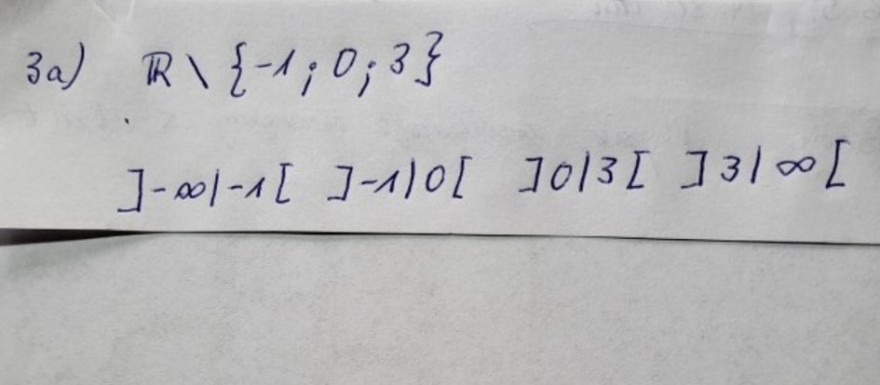 3a) ℝ \ {-1; 0; 3}
]-∞|-1[ ]-1|0[ ]0|3[ ]3|∞[